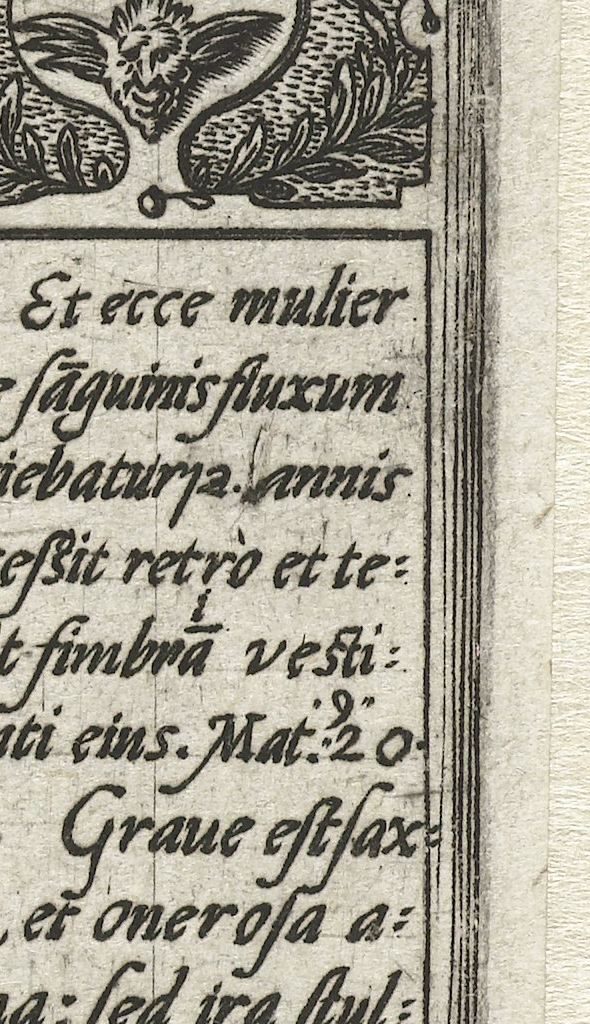 Et ecce mulier
e ſāguinis fluxum
iebatur 12. annis
ceſsit retrò et te=
t fimbriā veſti=
nti eius. Mat. 9 20.
Graue eſt ſax=
, et oneroſa a=
na: ſed ira ſtul=